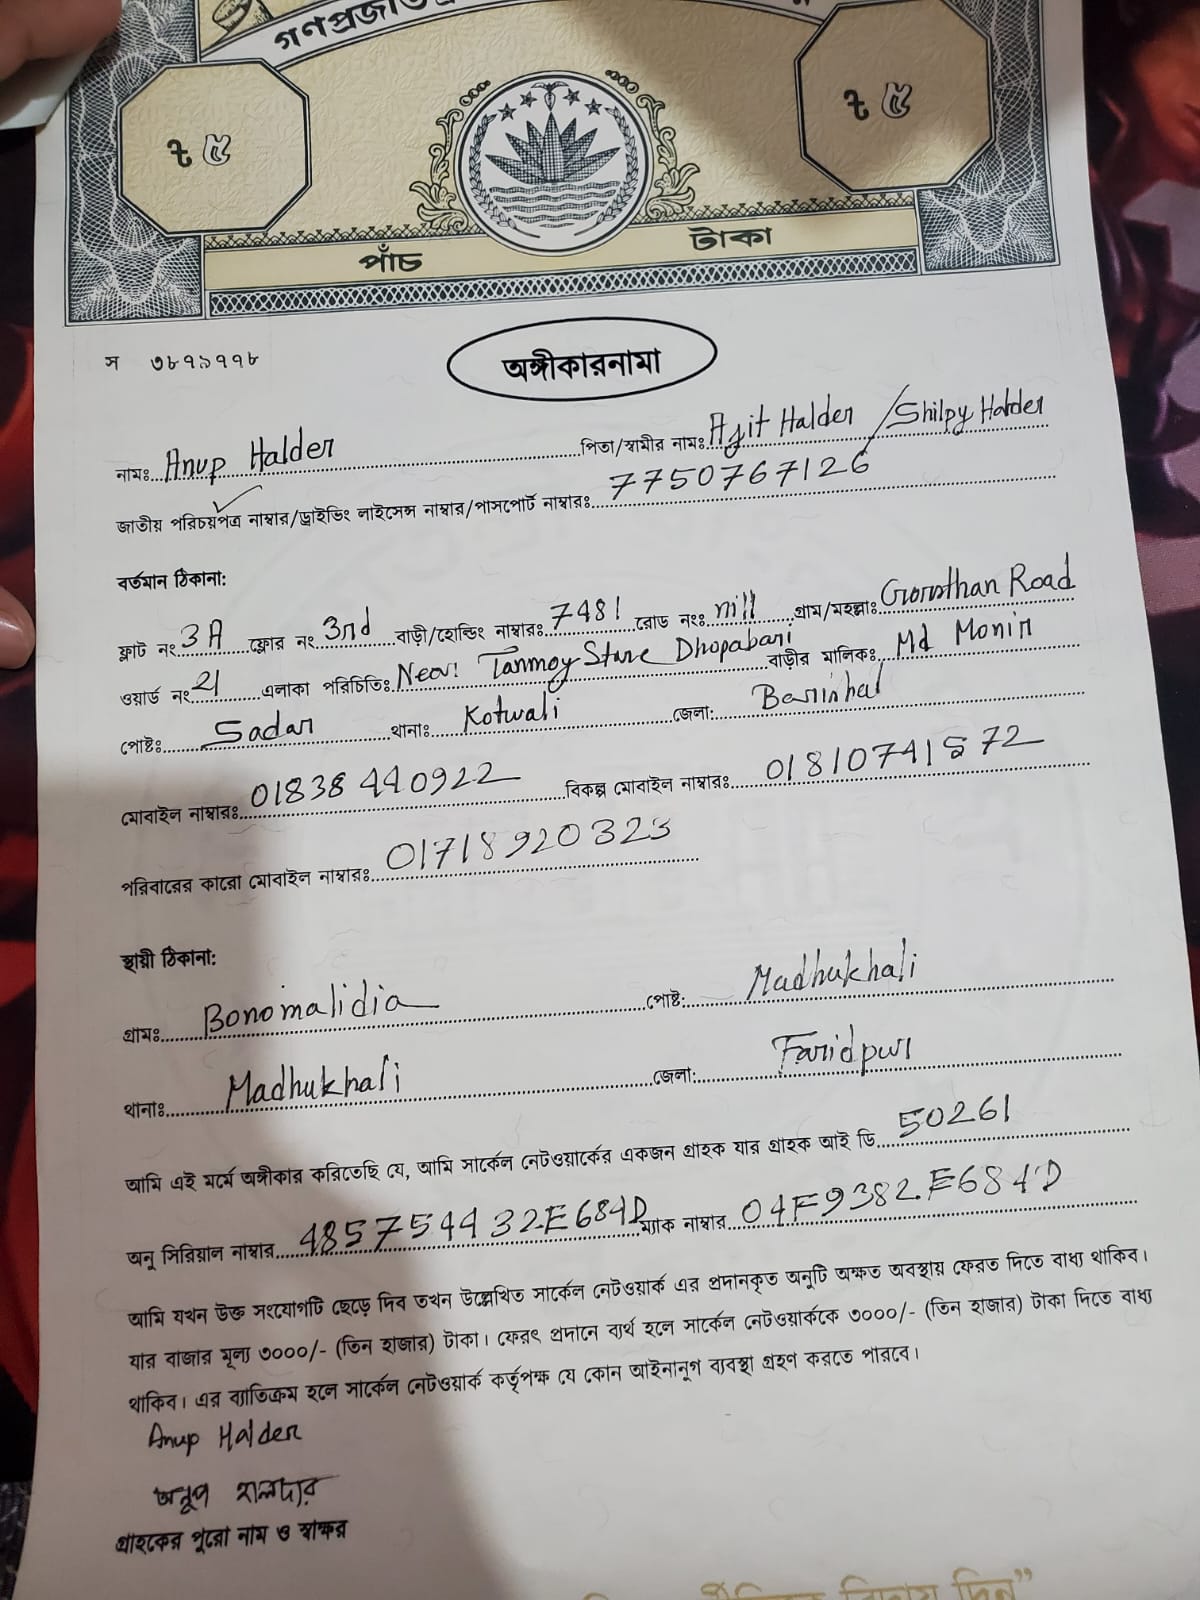 ৳ ৫
৳ ৫
পাঁচ টাকা
স ৩৮৭৯৭৭৮
অঙ্গীকারনামা
নামঃ Anup Halder পিতা/স্বামীর নামঃ Ajit Halder / Shilpy Halder
জাতীয় পরিচয়পত্র নাম্বার/ড্রাইভিং লাইসেন্স নাম্বার/পাসপোর্ট নাম্বারঃ 7750767126
বর্তমান ঠিকানা:
ফ্লাট নং 3A ফ্লোর নং 3rd বাড়ী/হোল্ডিং নাম্বারঃ 7481 রোড নংঃ nill গ্রাম/মহল্লাঃ Gorosthan Road
ওয়ার্ড নং 21 এলাকা পরিচিতিঃ Near: Tanmoy Store Dhopabari বাড়ীর মালিকঃ Md Monir
পোষ্টঃ Sadar থানাঃ Kotwali জেলা: Barishal
মোবাইল নাম্বারঃ 01838440922 বিকল্প মোবাইল নাম্বারঃ 01810741572
পরিবারের কারো মোবাইল নাম্বারঃ 01718920323
স্থায়ী ঠিকানা:
গ্রামঃ Bonomalidia পোষ্ট: Madhukhali
থানাঃ Madhukhali জেলা: Faridpur
আমি এই মর্মে অঙ্গীকার করিতেছি যে, আমি সার্কেল নেটওয়ার্কের একজন গ্রাহক যার গ্রাহক আই ডি 50261
অনু সিরিয়াল নাম্বার 485754432E684D ম্যাক নাম্বার 04F9382E684D
আমি যখন উক্ত সংযোগটি ছেড়ে দিব তখন উল্লেখিত সার্কেল নেটওয়ার্ক এর প্রদানকৃত অনুটি অক্ষত অবস্থায় ফেরত দিতে বাধ্য থাকিব।
যার বাজার মূল্য ৩০০০/- (তিন হাজার) টাকা। ফেরৎ প্রদানে ব্যর্থ হলে সার্কেল নেটওয়ার্ককে ৩০০০/- (তিন হাজার) টাকা দিতে বাধ্য
থাকিব। এর ব্যাতিক্রম হলে সার্কেল নেটওয়ার্ক কর্তৃপক্ষ যে কোন আইনানুগ ব্যবস্থা গ্রহণ করতে পারবে।
Anup Halder
অনুপ হালদার
গ্রাহকের পুরো নাম ও স্বাক্ষর